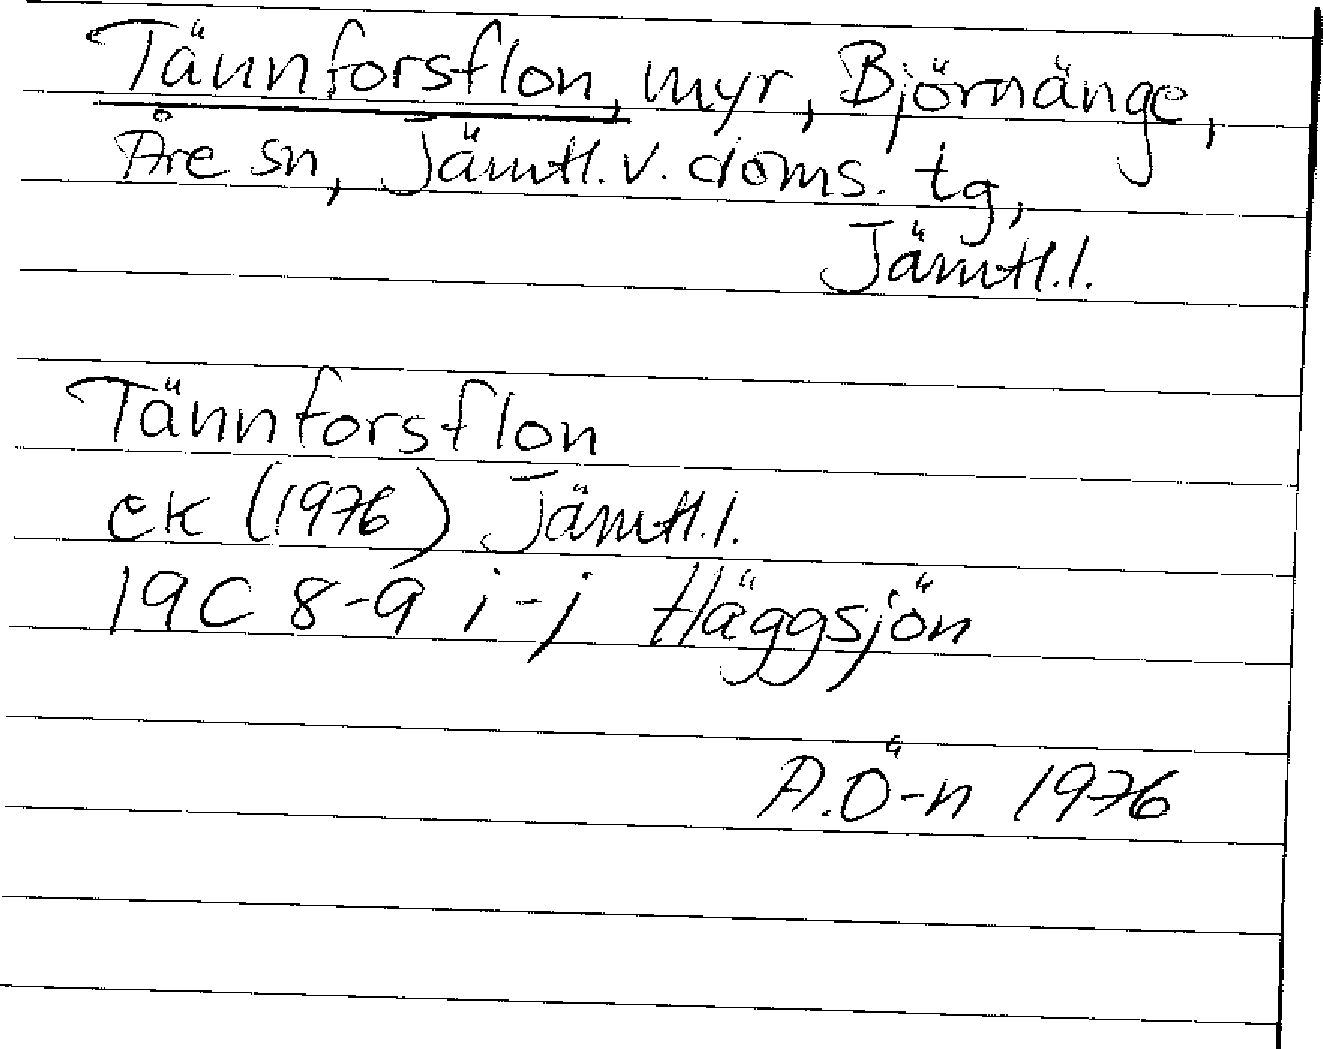 Tännforsflon, myr, Björnänge,
Åre sn, Jämtl. v. doms. tg,
Jämtl. l.
Tännforsflon
ek (1976) Jämtl. l.
19C 8-9 i-j Häggsjön
A.Ö-n 1976